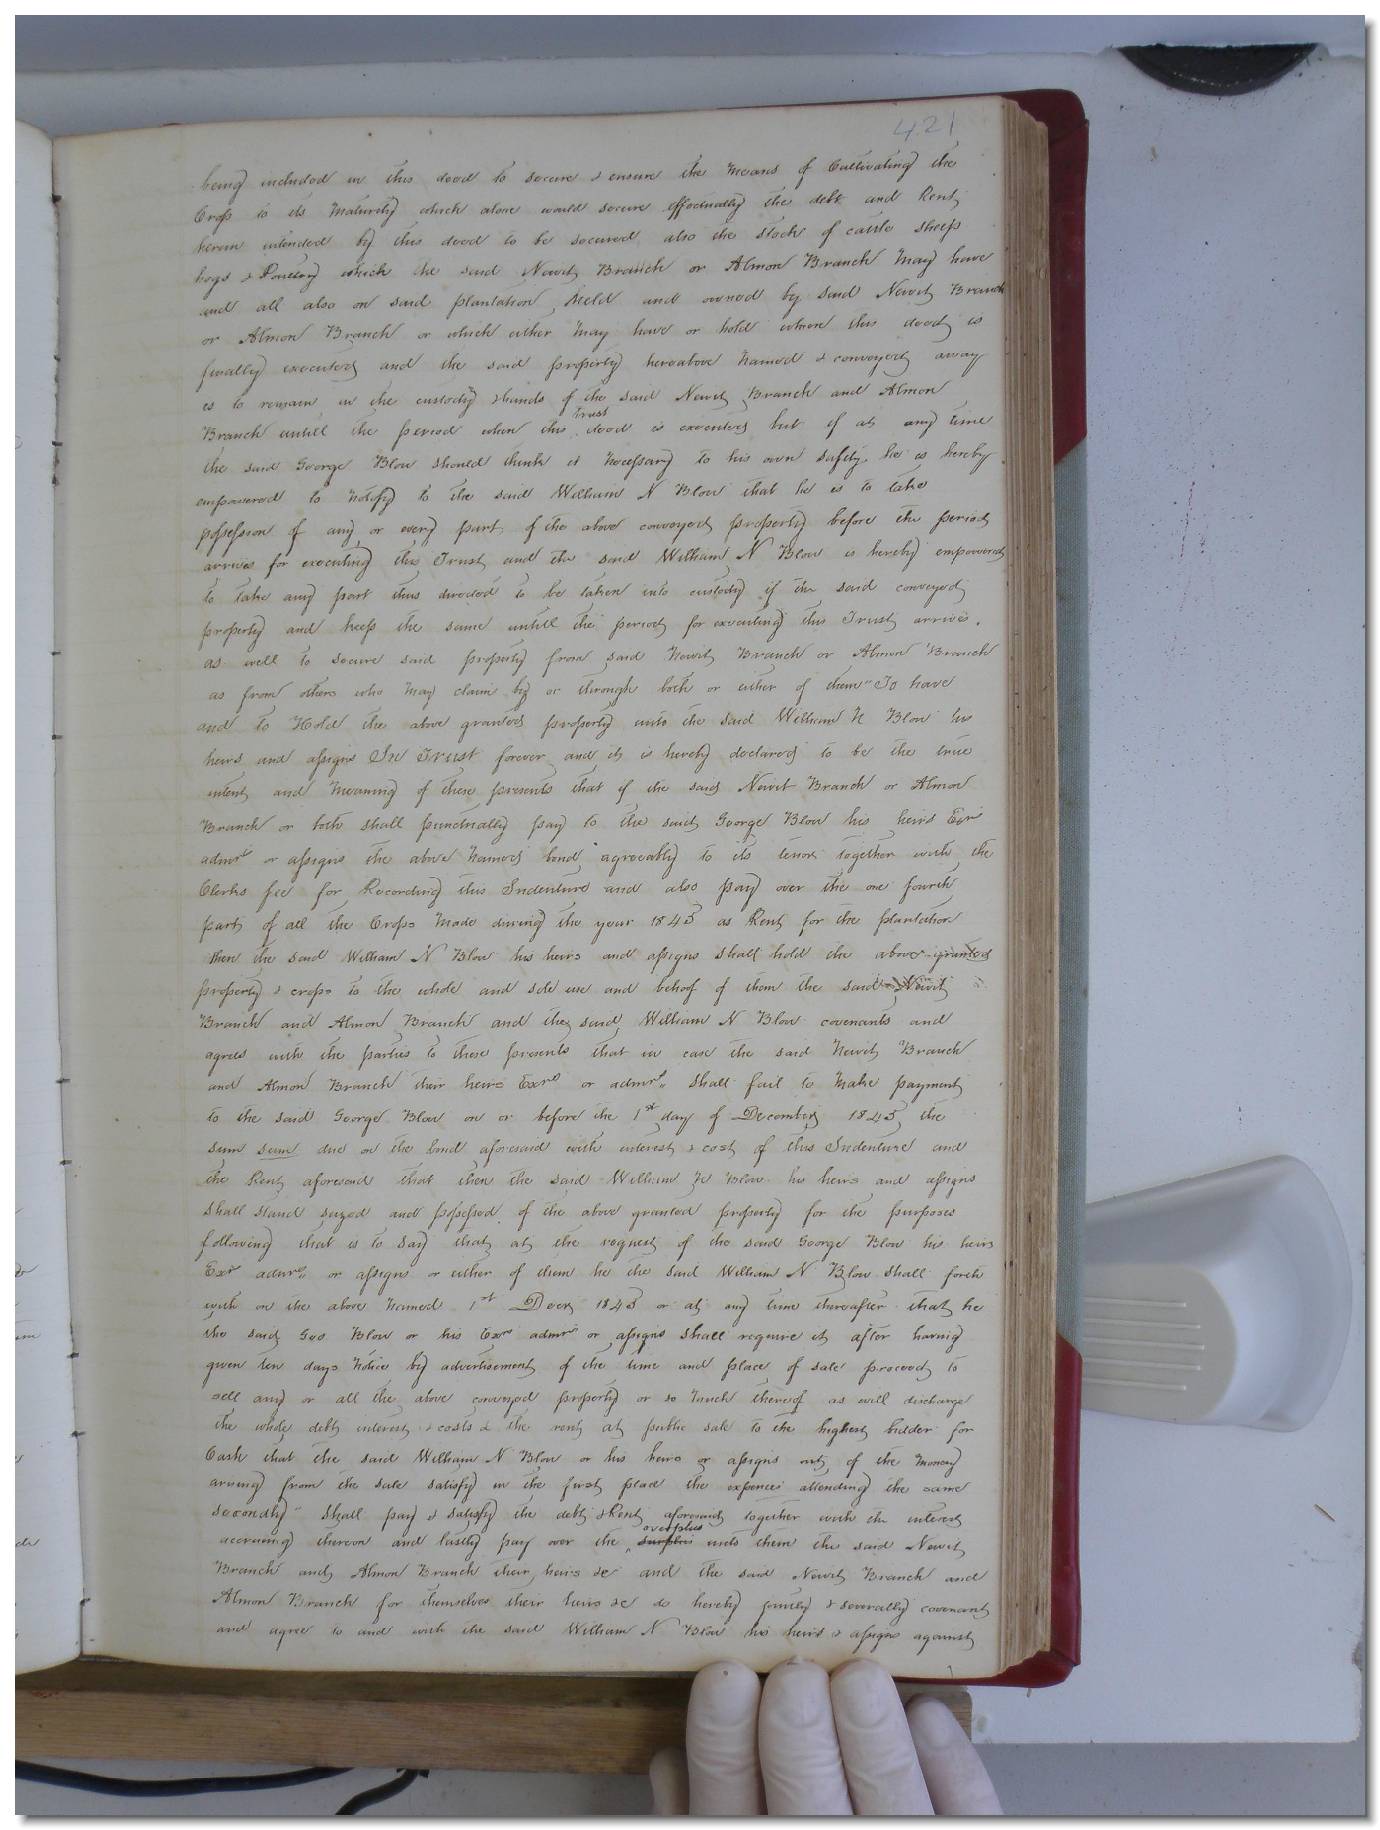 421
being included in this deed to secure & ensure the Means of Cultivating the
Crop to its Maturity which alone would secure effectually the debt and Rent
herein intended by this deed to be secured also the stock of cattle sheep
hogs & Poultry which the said Newit Branch or Almon Branch May have
and all also on said plantation held and owned by said Newit Branch
or Almon Branch or which either May have or hold when this deed is
finally executed and the said property hereabove Named & conveyed away
is to remain in the custody & hands of the said Newit Branch and Almon
Trust
Branch untill the period when this deed is executed but if at any time
the said George Blow should think it Necessary to his own safety he is hereby
empowered to Notify to the said William N Blow that he is to take
possession of any or every part of the above conveyed property before the period
arrives for executing this Trust and the said William N Blow is hereby empowered
to take any part thus directed to be taken into custody if the said conveyed
property and keep the same untill the period for executing this Trust arrives.
as well to secure said property from said Newit Branch or Almon Branch
as from others who May claim by or through both or either of them" To have
and to Hold the above granted property unto the said William N Blow his
heirs and assigns In Trust forever and it is hereby declared to be the true
intent and Meaning of these presents that if the said Newit Branch or Almon
Branch or both shall punctually pay to the said George Blow his heirs Exrs
admrs or assigns the above Named bond agreeably to its tenor together with the
Clerks fee for Recording this Indenture and also pay over the one fourth
part of all the Crops Made during the year 1843 as Rent for the plantation
then the said William N Blow his heirs and assigns shall hold the above granted
property & crops to the whole and sole use and behoof of them the said Newit
Branch and Almon Branch and the said William N Blow covenants and
agrees with the parties to these presents that in case the said Newit Branch
and Almon Branch their heirs Exrs or admrs shall fail to Make payment
to the said George Blow on or before the 1st day of December 1843 the
sum sum due on the bond aforesaid with interest & cost of this Indenture and
the Rent aforesaid that then the said William N Blow his heirs and assigns
Shall stand seized and possessed of the above granted property for the purposes
following that is to Say that at the request of the said George Blow his heirs
Exrs admrs or assigns or either of them he the said William N Blow shall forth
with on the above Named 1st Decr 1843 or at any time thereafter that he
the said Geo Blow or his Exrs admrs or assigns shall require it after having
given ten days Notice by advertisement of the time and place of sale proceed to
sell any or all the above conveyed property or so Much thereof as will discharge
the whole debt interest & costs & the rent at public sale to the highest bidder for
Cash that the said William N Blow or his heirs or assigns out of the Money
arising from the sale satisfy in the first place the expences attending the same
secondly" Shall pay & satisfy the debt & Rent aforesaid together with the interest
overplus
accruing thereon and lastly pay over the surplus unto them the said Newit
Branch and Almon Branch their heirs &c and the said Newit Branch and
Almon Branch for themselves their heirs &c do hereby jointly & severally covenant
and agree to and with the said William N Blow his heirs & assigns against